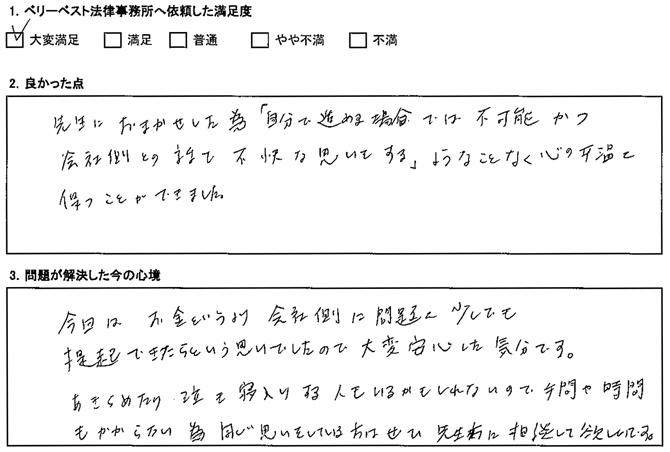 1. ベリーベスト法律事務所へ依頼した満足度
大変満足 満足 普通 やや不満 不満
2. 良かった点
先生におまかせした為「自分で進める場合では不可能かつ
会社側との話で不快な思いをする」ようなことなく心の平温を
保つことができました。
3. 問題が解決した今の心境
今回はお金というより会社側に問題を少しでも
提起できたらという思いでしたので大変安心した気分です。
あきらめたり泣き寝入りする人もいるかもしれないので手間や時間
もかからない為同じ思いをしている方はぜひ先生方に担当して欲しいです。